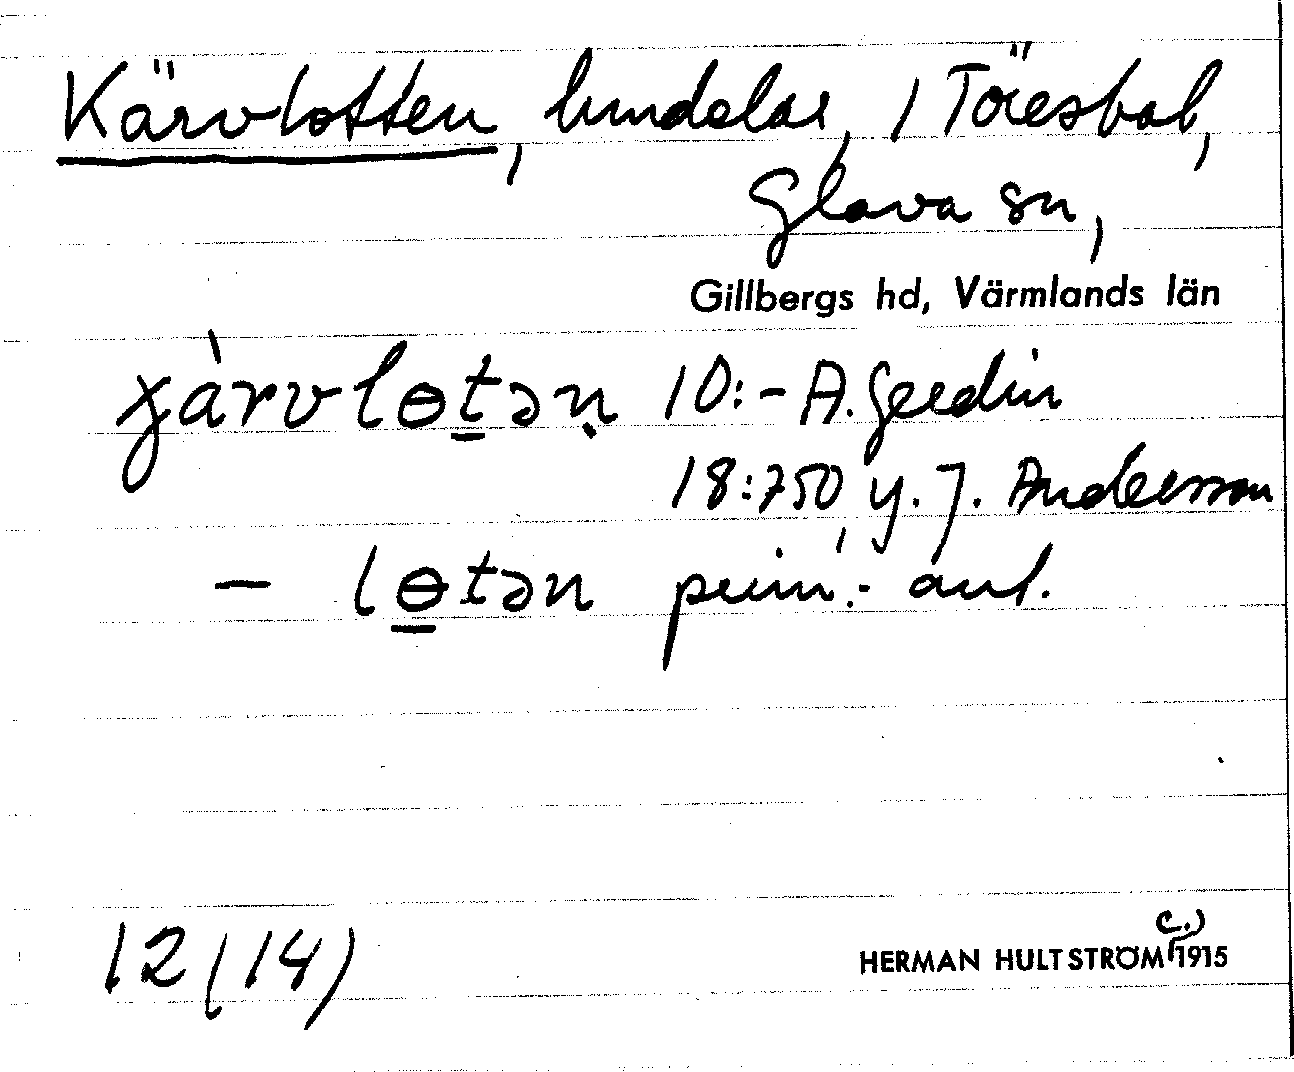 Kärvlotten, lindelar, 1 Töresbol,
Glava sn,
Gillbergs hd, Värmlands län
χàrvlɵtən 10:- A. Geedin
18:750, y. J. Andersson
- lɵtən prim.- aut.
12 (14)
HERMAN HULTSTRÖM c.) 1915